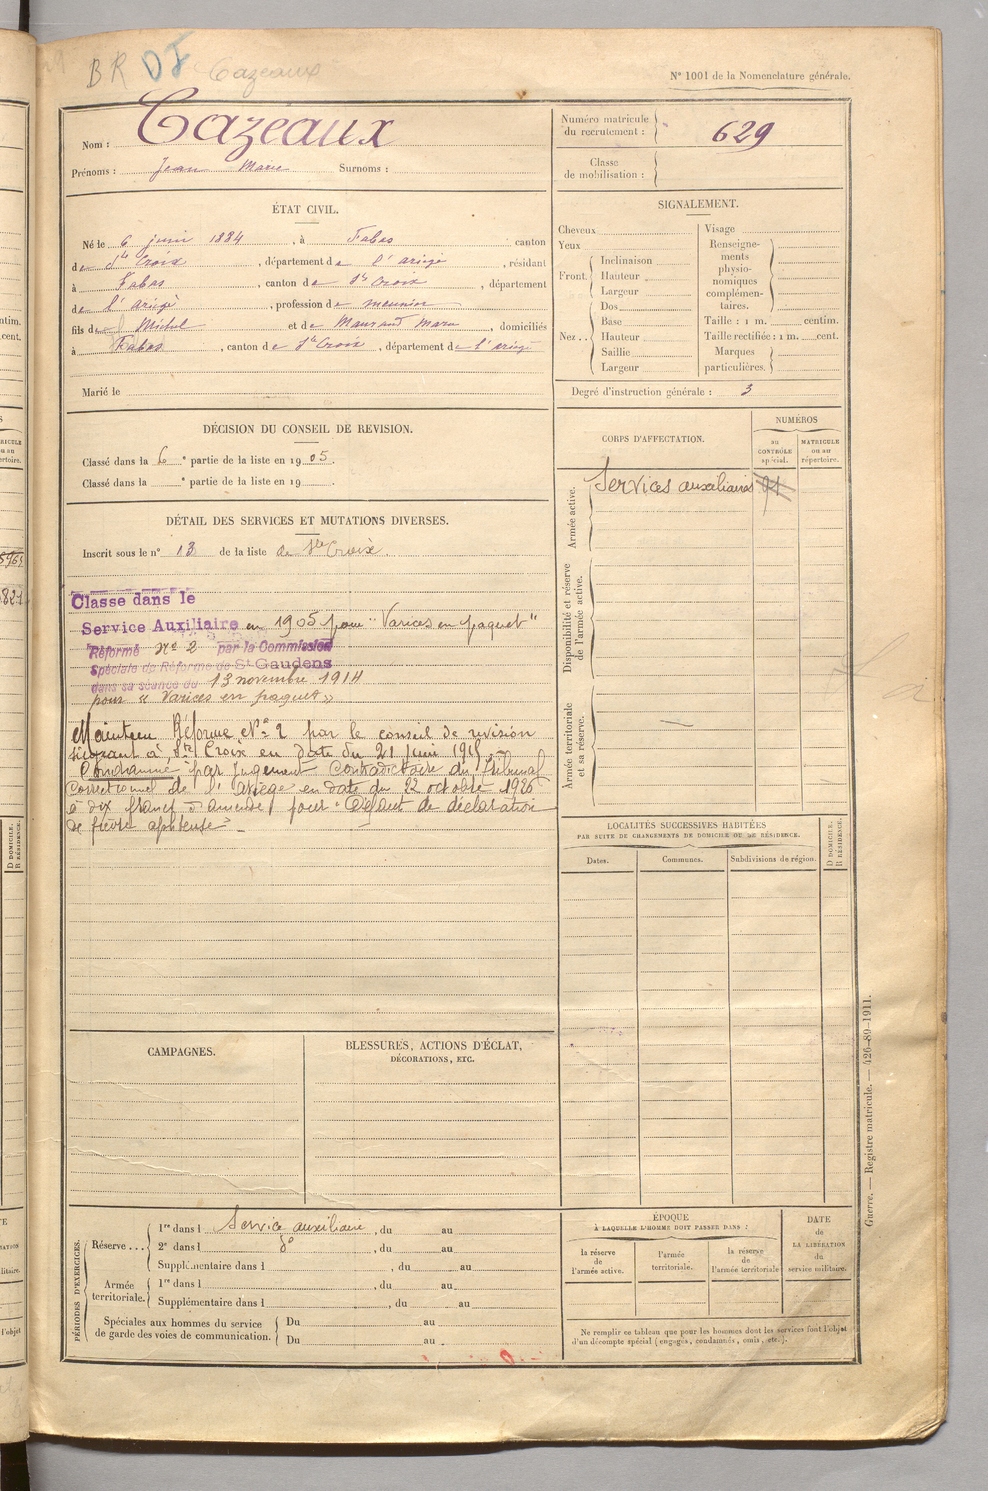 BR DF Cazeaux
N° 1001 de la Nomenclature générale.
Nom : Cazeaux
Prénoms : Jean Marie Surnoms :
Numéro matricule du recrutement : 629
Classe de mobilisation :
ÉTAT CIVIL.
Né le 6 juin 1884, à Fabas canton
de Ste Croix, département de l'ariège, résidant
à Fabas, canton de Ste Croix, département
de l'ariège, profession de meunier
fils de Michel et de Mauraud Marie, domiciliés
à Fabas, canton de Ste Croix, département de l'ariège
Marié le
SIGNALEMENT.
Cheveux
Yeux
Front. Inclinaison
Hauteur
Largeur
Nez.. Dos
Base
Hauteur
Saillie
Largeur
Visage
Renseigne-
ments
physio-
nomiques
complémen-
taires.
Taille : 1 m. centim.
Taille rectifiée : 1 m. cent.
Marques
particulières.
Degré d'instruction générale : 3
DÉCISION DU CONSEIL DE REVISION.
Classé dans la 6e partie de la liste en 1905.
Classé dans la e partie de la liste en 19 .
DÉTAIL DES SERVICES ET MUTATIONS DIVERSES.
Inscrit sous le n° 13 de la liste de Ste Croix
Classe dans le
Service Auxiliaire en 1905 pour "Varices en paquet"
Réformé n° 2 par la Commission
Spéciale de Réforme de St Gaudens
dans sa séance du 13 novembre 1914
pour « Varices en paquet »
Maintenu Réformé N° 2 par le conseil de revision
siégeant à Ste Croix en date du 21 Juin 1915
Condamné par Jugement contradictoire du Tribunal
Correctionnel de l'Ariège en date du 22 octobre 1926
à dix francs d'amende pour "Défaut de déclaration
de fièvre aphteuse"
CORPS D'AFFECTATION.
NUMÉROS
au
CONTRÔLE
spécial.
MATRICULE
ou au
répertoire.
Armée active.
Services auxiliaires 91
Disponibilité et réserve
de l'armée active.
Armée territoriale
et sa réserve.
LOCALITÉS SUCCESSIVES HABITÉES
PAR SUITE DE CHANGEMENTS DE DOMICILE OU DE RÉSIDENCE.
Dates.
Communes.
Subdivisions de région.
D DOMICILE.
R RÉSIDENCE.
CAMPAGNES.
BLESSURES, ACTIONS D'ÉCLAT,
DÉCORATIONS, ETC.
PÉRIODES D'EXERCICES.
Réserve... 1re dans l Service auxiliaire, du au
2e dans l do, du au
Supplémentaire dans l , du au
Armée
territoriale. 1re dans l , du au
Supplémentaire dans l , du au
Spéciales aux hommes du service
de garde des voies de communication.
Du au
Du au
ÉPOQUE
À LAQUELLE L'HOMME DOIT PASSER DANS :
la réserve
de
l'armée active.
l'armée
territoriale.
la réserve
de
l'armée territoriale
DATE
de
LA LIBÉRATION
du
service militaire.
Ne remplir ce tableau que pour les hommes dont les services font l'objet
d'un décompte spécial (engagés, condamnés, omis, etc.).
Guerre. — Registre matricule. — 426-89-1911.